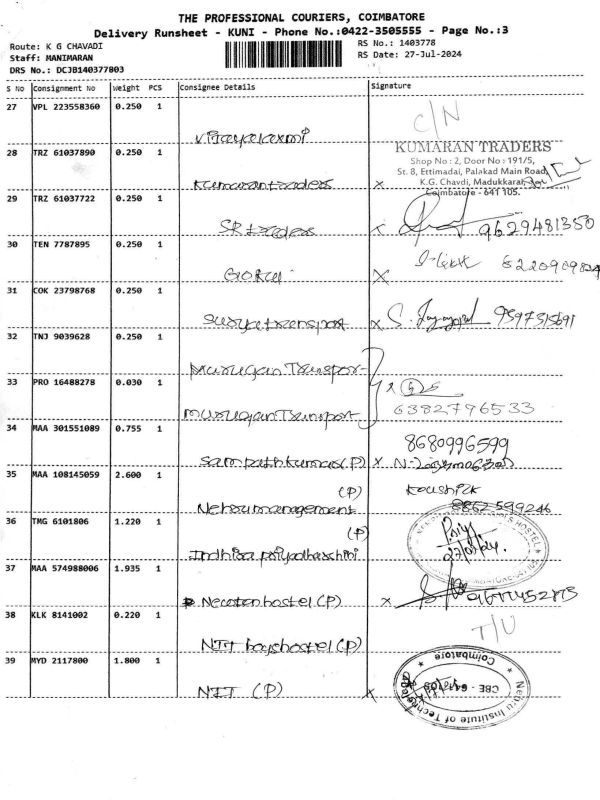 THE PROFESSIONAL COURIERS, COIMBATORE
Delivery Runsheet - KUNI - Phone No.:0422-3505555 - Page No.:3
Route: K G CHAVADI
Staff: MANIMARAN
DRS No.: DCJB140377803
RS No.: 1403778
RS Date: 27-Jul-2024
S No Consignment No Weight PCS Consignee Details Signature
27 VPL 223558360 0.250 1
C/N
Vijayalaxmi
KUMARAN TRADERS
Shop No : 2, Door No : 191/5,
St. 8, Ettimadai, Palakad Main Road,
K.G. Chavdi, Madukkarai,
Coimbatore - 641 105.
28 TRZ 61037890 0.250 1
Kumaran traders x
29 TRZ 61037722 0.250 1
SR traders x 9629481350
30 TEN 7787895 0.250 1
x
31 COK 23798768 0.250 1
Surya transport x S. 9597515691
32 TNJ 9039628 0.250 1
Murugan Transpor-
33 PRO 16488278 0.030 1
Murugan Transport 6382796533
34 MAA 301551089 0.755 1
8680996599
Sampathkumar (P) x
35 MAA 108145059 2.600 1
(P) Koushik
Nehru management 8862599246
36 TMG 6101806 1.220 1
(P)
Indhira priyadharshini
Priya
27/07/24.
37 MAA 574988006 1.935 1
hostel (P) x
38 KLK 8141002 0.220 1
T/U
NIT boyshostel (P)
39 MYD 2117800 1.800 1
NIT (P) x
Nehru Institute of Technology
Coimbatore